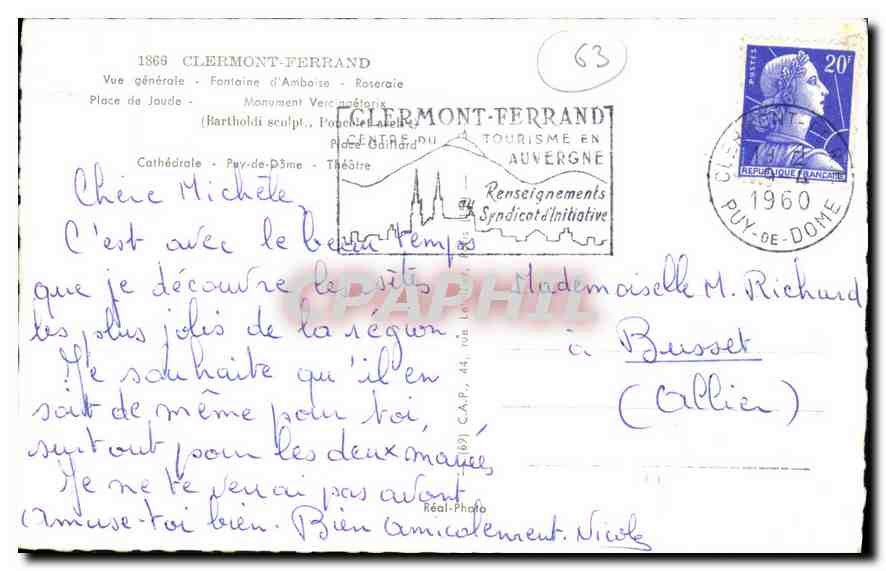 1866 CLERMONT-FERRAND
Vue générale - Fontaine d'Amboise - Roseraie
Place de Jaude - Monument Vercingétorix
(Bartholdi sculpt.,
Place Gaillard
Cathédrale - Puy-de-Dôme - Théâtre
63
CLERMONT-FERRAND
CENTRE DU TOURISME EN
AUVERGNE
Renseignements
au Syndicat d'Initiative
POSTES
20F
REPUBLIQUE FRANÇAISE
1960
PUY-DE-DOME
Chère Michèle,
C'est avec le beau temps
que je découvre les sites
les plus jolis de la région
Je souhaite qu'il en
soit de même pour toi,
surtout pour les deux mariés
Je ne te verrai pas avant
Amuse-toi bien. Bien amicalement. Nicole
Réal-Photo
(69) C.A.P., 44, rue
CPAPHIL
Mademoiselle M. Richard
à Busset
(Allier)